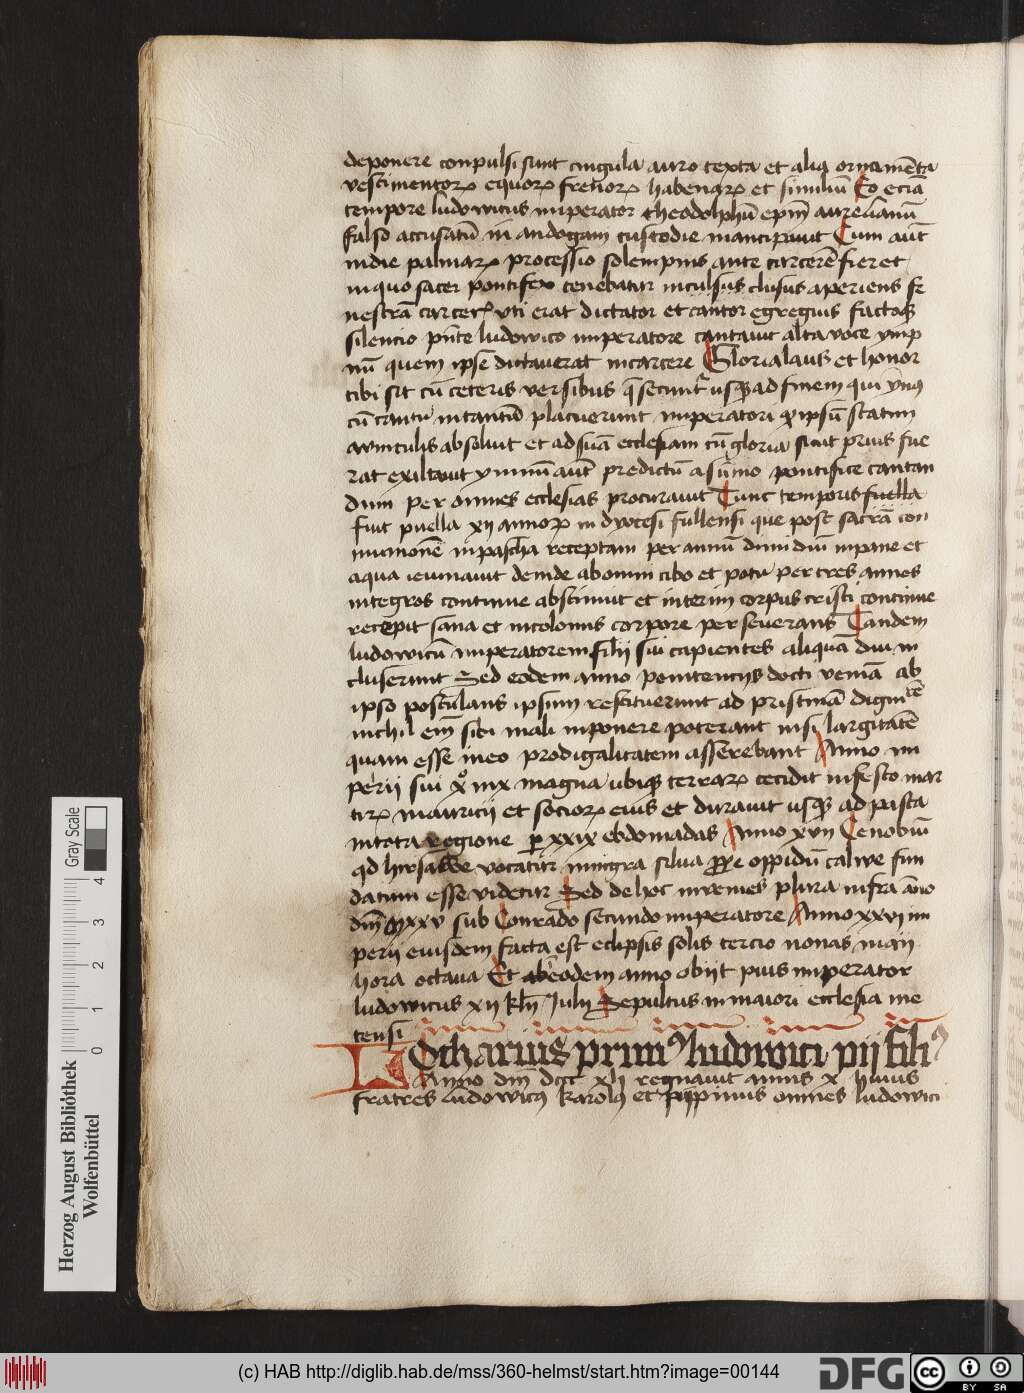 deponere conpulsi sunt cingula auro texta et aliq ornamēta
vestimentoꝝ equoꝝ fretioꝝ habenaꝝ et similiū Eo eciā
tempore ludowicus imperator theodolphū epm̄ aurelianū
falso accusatū in andogam custodie mancipauit Cum aūt
in die palmaꝝ processio solempnis ante carcerē fieret
in quo sacer pontifex tenebatur inculsus clusus aperiens fe
nestrā carceꝝ vti erat dictator et cantor egregius factoqꝫ
silencio pn̄te ludowico imperatore cantauit alta voce ymp
nū quem ipse dictauerat in carcere Gloria laus et honor
tibi sit cū ceteris versibus q̄ secunt᷑ usqꝫ ad finem qui ỹnꝰ
cū cantu in tantū placuerunt imperatori qꝫ ipsū statim
a vinculis absoluit et ad suā ecclesiam cū gloria sicut prius fue
rat exiltauit ymnū aūt predictū a sūmo pontifice cantan
dum per omnes ecclesias procurauit Tunc temporis fuella
fuit puella xij annoꝝ in dyocesi fullensi que post sacrā con
municionē in pascha receptam per annū dimidiū in pane et
aqua ieiunauit deinde ab omni cibo et potu per tres annos
integros continue abstinuit et interim corpus cristi continue
recepit sana et incolomis corpore perseuerans Tandem
ludowicū imperatorem filij sui capientes aliquā diu in
cluserunt Sed eodem anno penitencijs docti veniā ab
ipso postulans ipsum restituerunt ad pristinā digni tē
nichil em̄ sibi mali inponere poterant nisi largitatē
quam esse in eo prodigalitatem asserebant Anno im
perii sui xº nix magna ubiqꝫ terraꝝ cecidit in festo mar
tirꝝ mauricij et socioꝝ eius et durauit usqꝫ ad pasca
in tota regione ꝑ xxix ebdomadas Anno xvij Cenobiū
qd hirsawe vocatur in nigra silua ꝓpe oppidū calwe fun
datum esse videtur Sed de hoc inuenies plura infra āno
dm̄ Mxxv sub Conrado secundo imperatore Anno xxvi im
perij eiusdem facta est eclipsis solis tercio nonas maij
hora octaua Et eodem anno obijt pius imperator
ludowicus xij kln̄ Julij Sepultus in maiori ecclesia me
tensi
Lotharius primꝰ ludowici pij filiꝰ
Anno dm̄ dccc xlj regnauit annis x huius
fratres ludowicꝰ karolꝰ et pippinus omnes ludowici
Herzog August Bibliothek
Wolfenbüttel
Gray Scale
0 1 2 3 4
(c) HAB http://diglib.hab.de/mss/360-helmst/start.htm?image=00144
DFG
cc BY SA